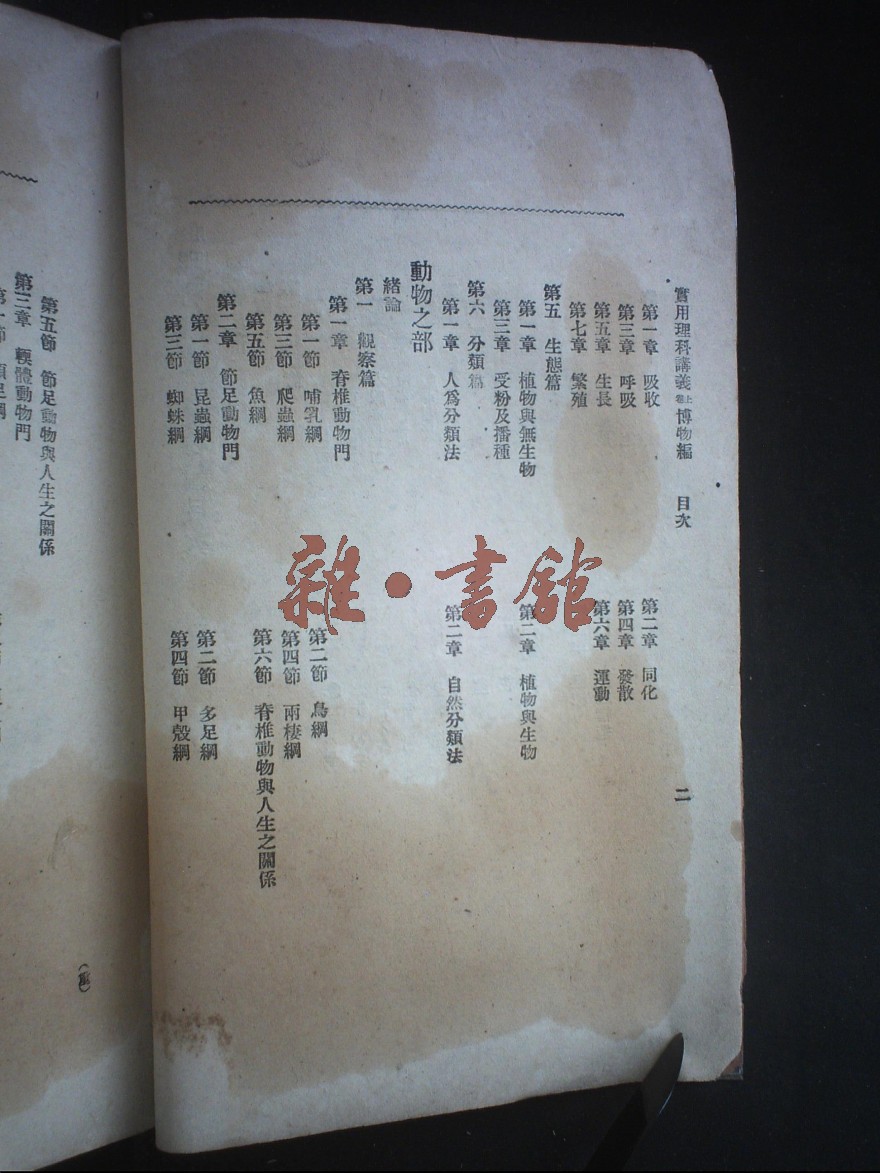 實用理科講義 卷上 博物編 目次 二
第一章 吸收 第二章 同化
第三章 呼吸 第四章 發散
第五章 生長 第六章 運動
第七章 繁殖
第五 生態篇
第一章 植物與無生物 第二章 植物與生物
第三章 受粉及播種
第六 分類篇
第一章 人爲分類法 第二章 自然分類法
動物之部
緒論
第一 觀察篇
第一章 脊椎動物門
第一節 哺乳綱 第二節 鳥綱
第三節 爬蟲綱 第四節 兩棲綱
第五節 魚綱 第六節 脊椎動物與人生之關係
第二章 節足動物門
第一節 昆蟲綱 第二節 多足綱
第三節 蜘蛛綱 第四節 甲殼綱
第五節 節足動物與人生之關係
第三章 輭體動物門
雜·書舘